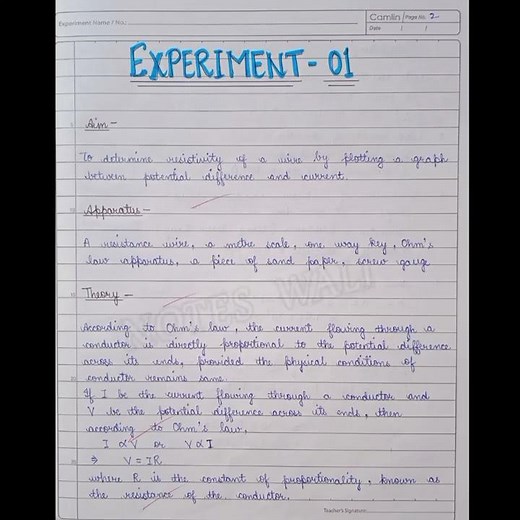 Experiment Name / No.:
Camlin Page No. 2
Date / /
EXPERIMENT - 01
Aim -
To determine resistivity of a wire by plotting a graph
between potential difference and current.
Apparatus -
A resistance wire, a metre scale, one way key, Ohm's
law apparatus, a piece of sand paper, screw gauge
Theory -
NOTES WALI
According to Ohm's law, the current flowing through a
conductor is directly proportional to the potential difference
across its ends, provided the physical conditions of
conductor remains same.
If I be the current flowing through a conductor and
V be the potential difference across its ends, then
according to Ohm's law,
I ∝ V or V ∝ I
⇒ V = IR
where R is the constant of proportionality, known as
the resistance of the conductor.
Teacher's Signature